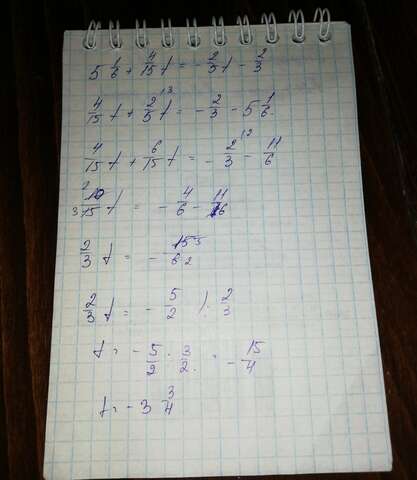 5 1/6 + 4/15 t = - 2/5 t - 2/3
4/15 t + 2/5 t = - 2/3 - 5 1/6
4/15 t + 6/15 t = - 2/3 - 11/6
10/15 t = - 4/6 - 11/6
2/3 t = - 15/6
2/3 t = - 5/2 | : 2/3
t = - 5/2 · 3/2 = - 15/4
t = - 3 3/4